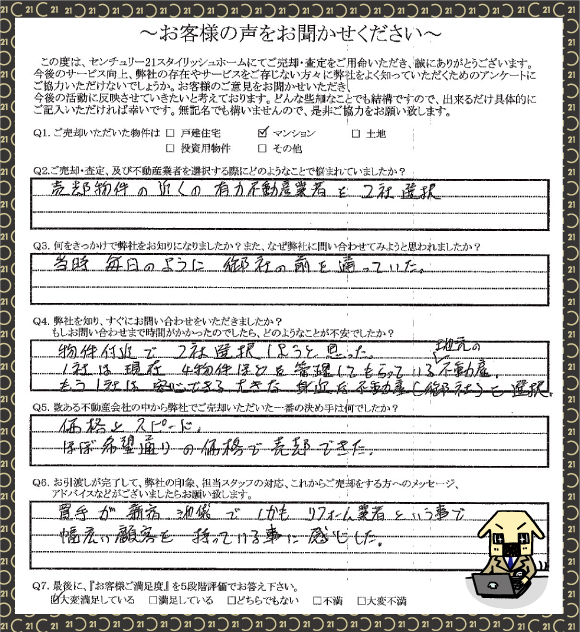 ～お客様の声をお聞かせください～
この度は、センチュリー21スタイリッシュホームにてご売却・査定をご用命いただき、誠にありがとうございます。
今後のサービス向上、弊社の存在やサービスをご存じない方々に弊社をよく知っていただくためのアンケートに
ご協力いただけないでしょうか。お客様のご意見をお聞かせいただき、
今後の活動に反映させていきたいと考えております。どんな些細なことでも結構ですので、出来るだけ具体的に
ご記入いただければ幸いです。無記名でも構いませんので、是非ご協力をお願い致します。
Q1. ご売却いただいた物件は □ 戸建住宅 ☑ マンション □ 土地
□ 投資用物件 □ その他
Q2.ご売却・査定、及び不動産業者を選択する際にどのようなことで悩まれていましたか？
売却物件の近くの有力不動産業者を2社選択
Q3. 何をきっかけで弊社をお知りになりましたか？また、なぜ弊社に問い合わせてみようと思われましたか？
当時毎日のように御社の前を通っていた。
Q4. 弊社を知り、すぐにお問い合わせをいただきましたか？
もしお問い合わせまで時間がかかったのでしたら、どのようなことが不安でしたか？
物件付近で2社選択しようと思った。
1社は現在4物件ほどを管理してもらっている地元の不動産。
もう1社は安心できる大きな身近な不動産(御社)を選択。
Q5. 数ある不動産会社の中から弊社でご売却いただいた一番の決め手は何でしたか？
価格とスピード。
ほぼ希望通りの価格で売却できた。
Q6. お引渡しが完了して、弊社の印象、担当スタッフの対応、これからご売却をする方へのメッセージ、
アドバイスなどがございましたらお願い致します。
買手が新宿池袋でしかもリフォーム業者という事で
幅広い顧客を持っている事に感じした。
Q7. 最後に、『お客様ご満足度』を5段階評価でお答え下さい。
☑大変満足している □満足している □どちらでもない □不満 □大変不満